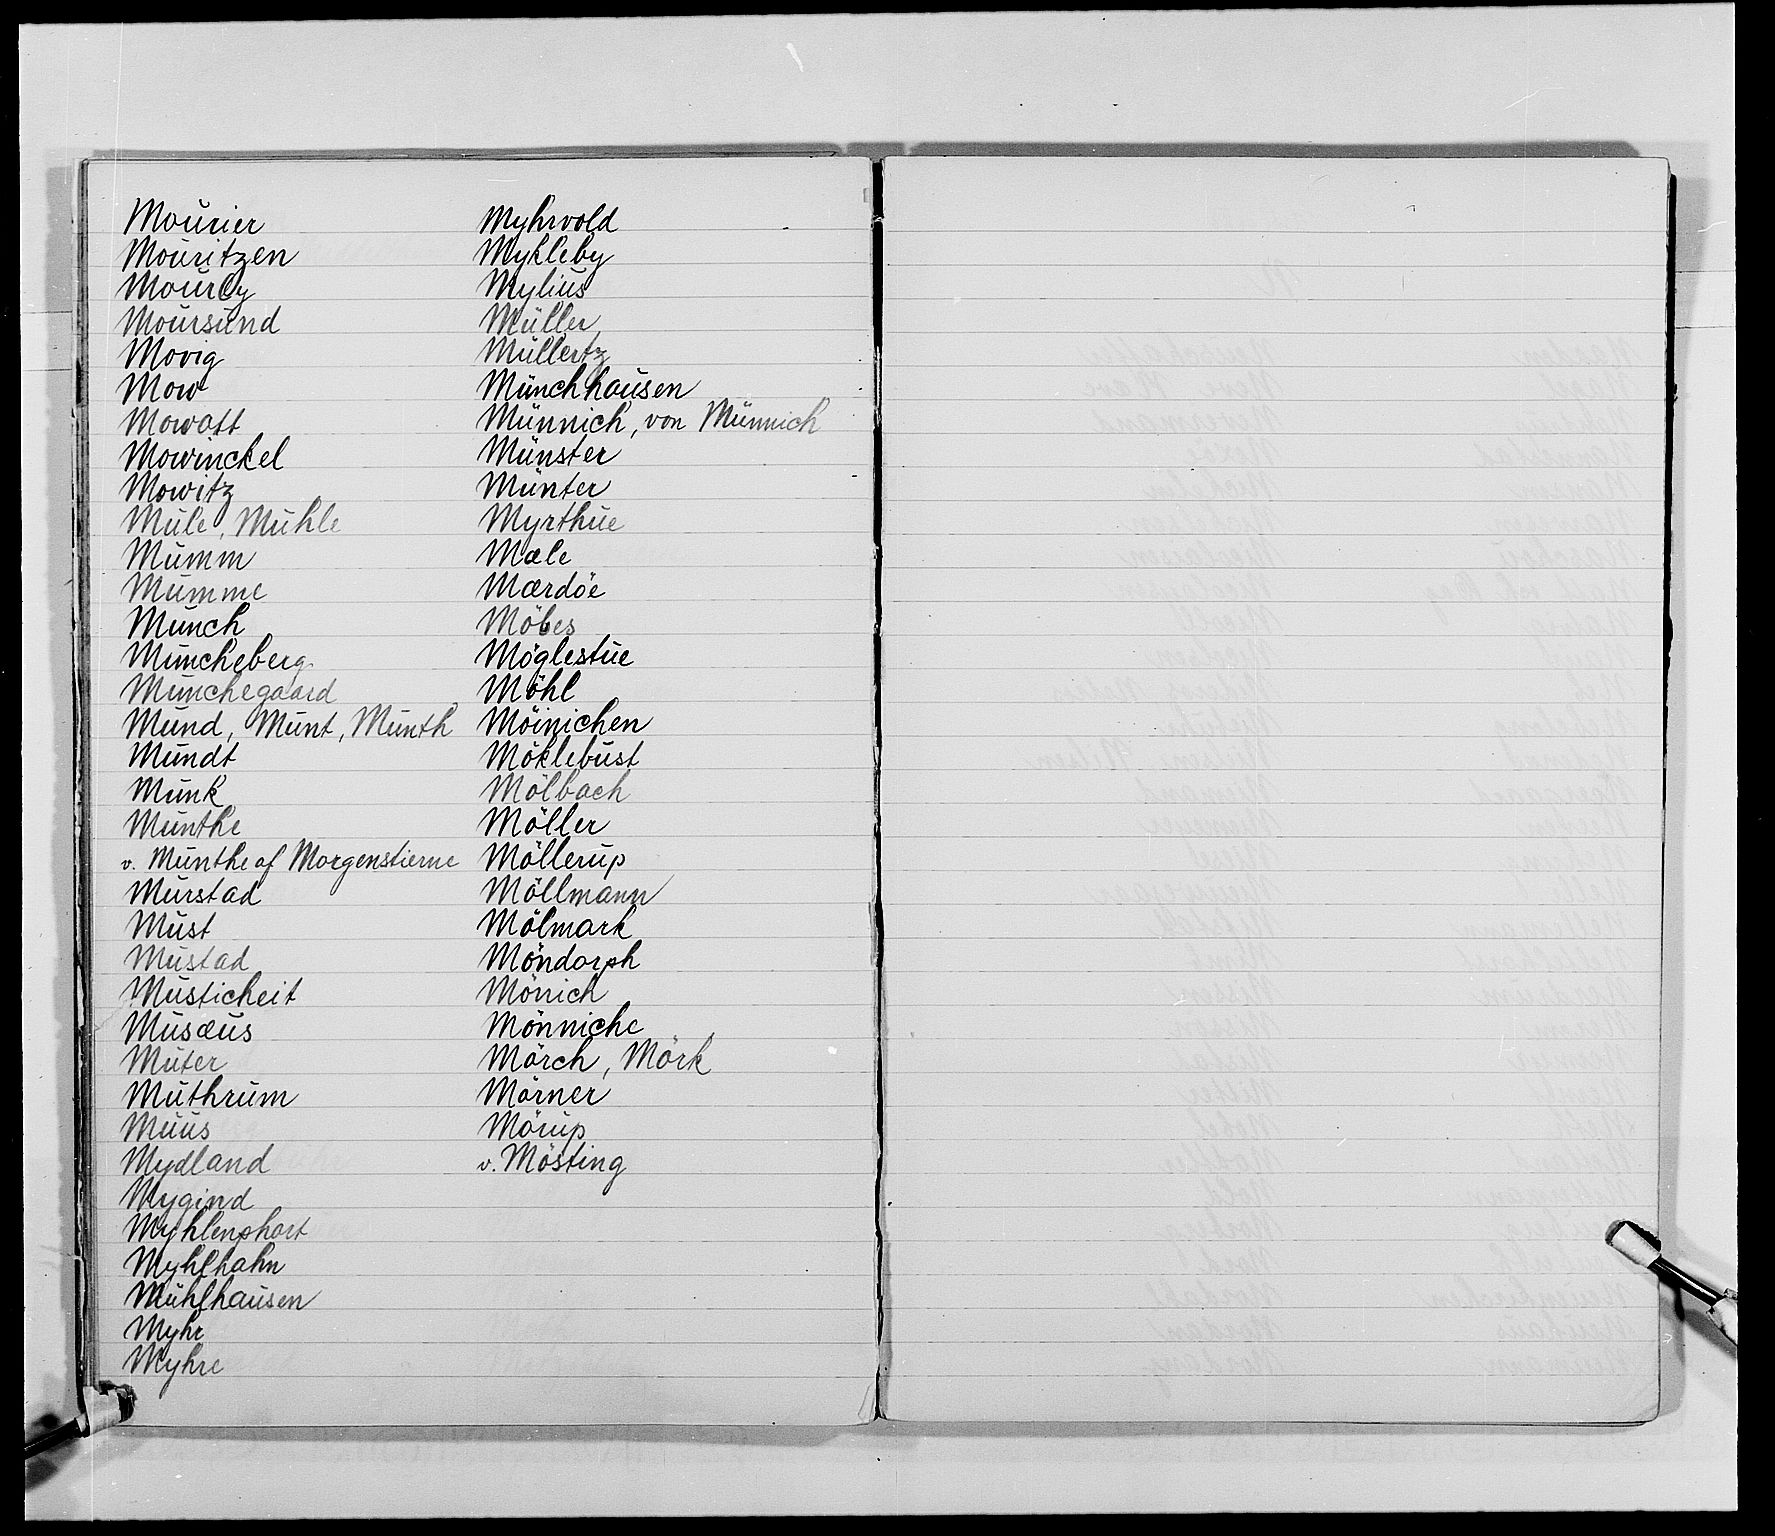 Mourier
Mouritzen
Mourly
Moursund
Movig
Mow
Mowatt
Mowinckel
Mowitz
Mule, Muhle
Mumm
Mumme
Munch
Muncheberg
Munchegaard
Mund, Munt, Munth
Mundt
Munk
Munthe
v. Munthe af Morgenstierne
Murstad
Must
Mustad
Musticheit
Musæus
Muter
Muthrum
Muus
Mydland
Mygind
Myhlenphort
Myhlhahn
Mühlhausen
Myhr
Myhre
Myhrvold
Mykleby
Mylius
Müller
Müllertz
Münchhausen
Münnich, von Münnich
Münster
Münter
Myrthue
Mæle
Mærdöe
Möbes
Möglestue
Möhl
Möinichen
Möklebust
Mölbach
Möller
Möllerup
Möllmann
Mölmark
Möndorph
Mönich
Mönniche
Mörch, Mörk
Mörner
Mörup
v. Mösting